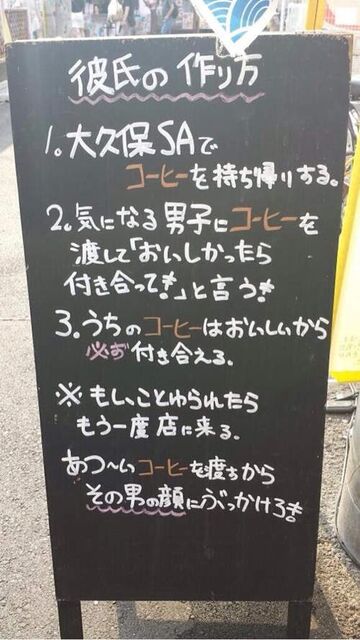 彼氏の作り方
1。大久保SAで
コーヒーを持ち帰りする。
2。気になる男子にコーヒーを
渡して「おいしかったら
付き合って!」と言う!
3。うちのコーヒーはおいしいから
必ず付き合える。
※もし、ことわられたら
もう一度店に来る。
あつ〜いコーヒーを渡すから
その男の顔にぶっかけろ!